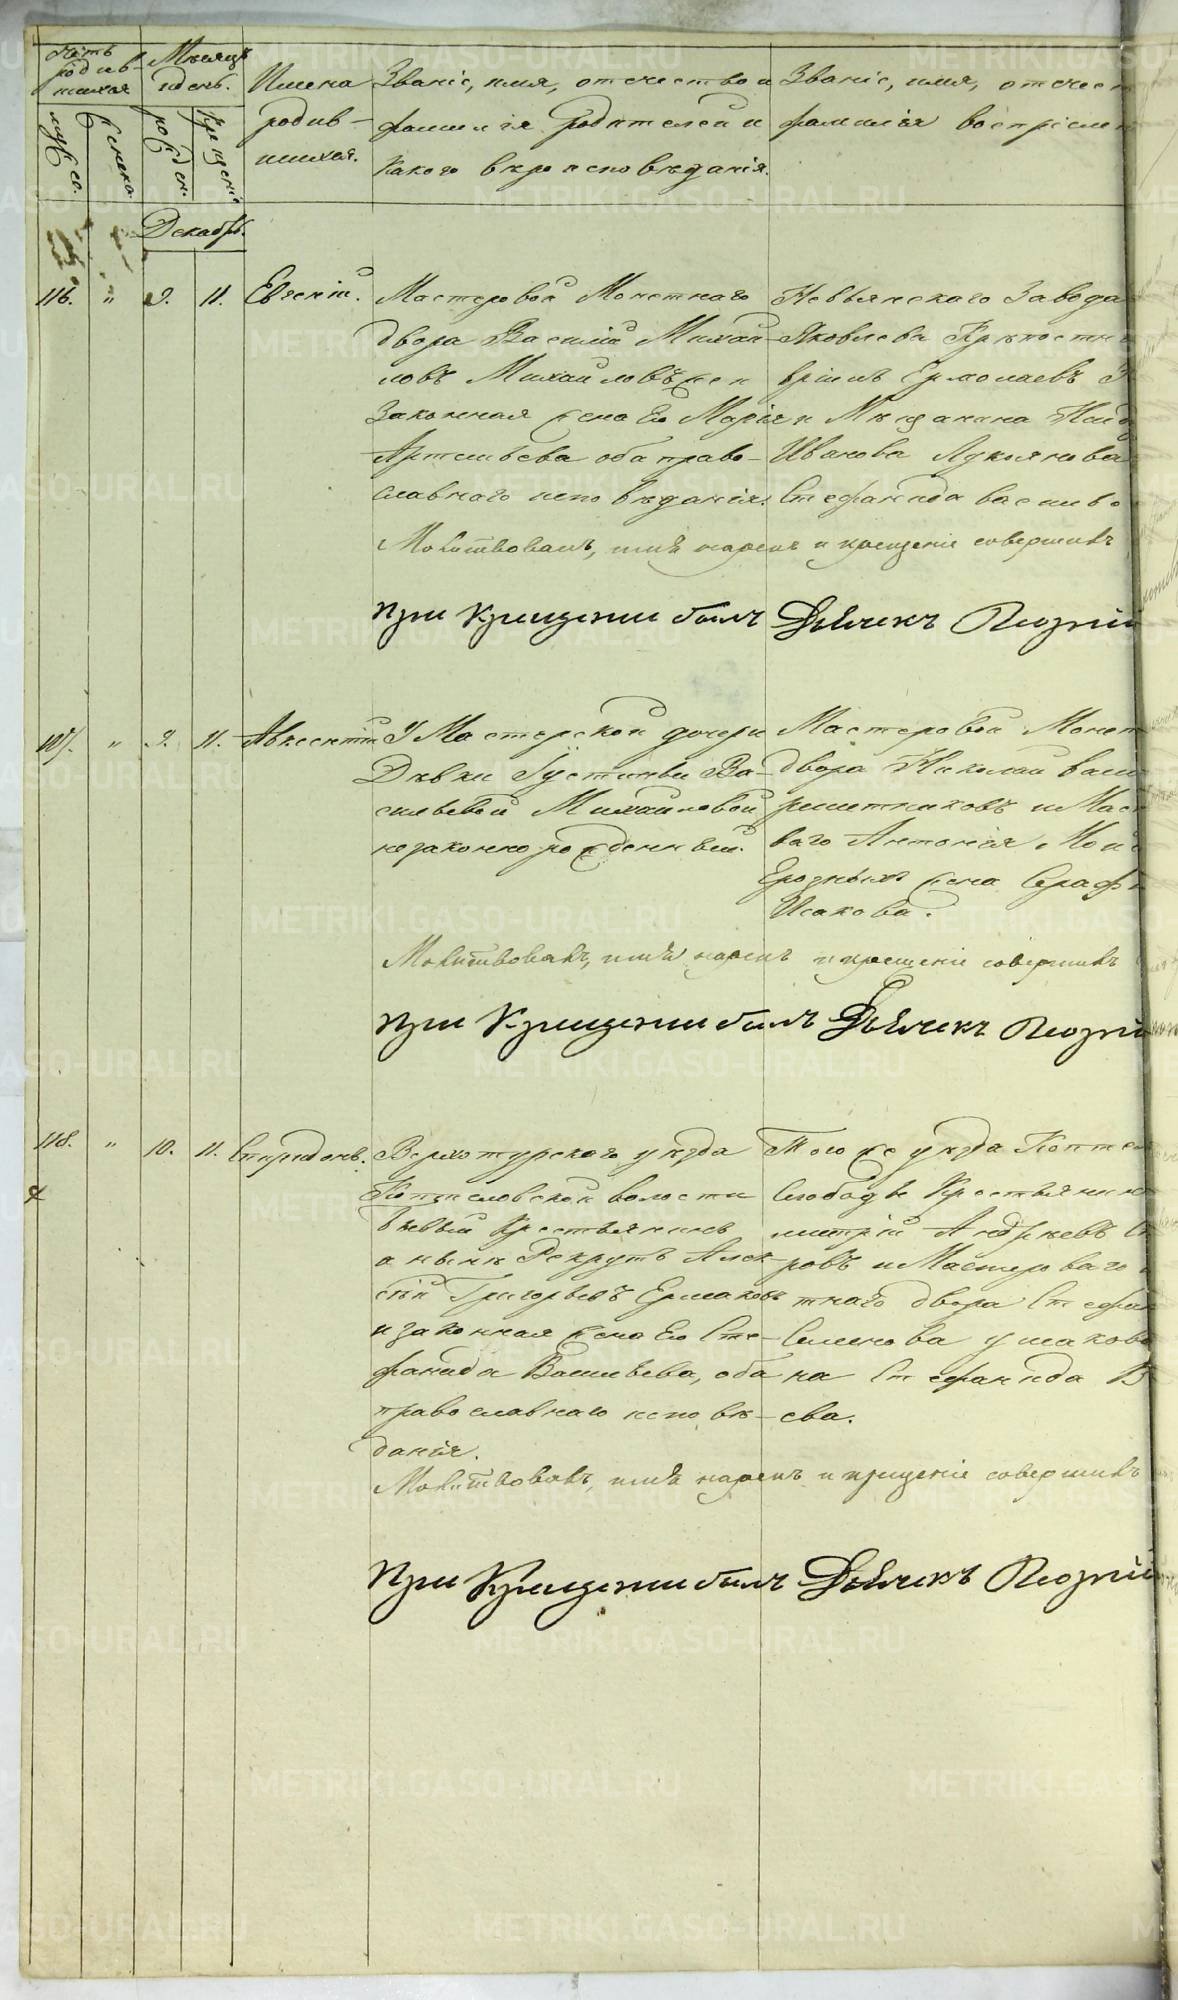 Счетъ родив-шихся
Мѣсяцъ и день.
Имена родив-шихся.
Званіе, имя, отчество и
фамилія родителей и
какого вѣроисповѣданія.
Званіе, имя, отчест
фамилія воспріемн
муж. по.
женска.
рожден.
крещеніе
Декабрь.
116. " 9. 11. Евгеній.
Мастеровой Монетнаго
двора Василій Михай-
ловъ Михайловъ, и
законная жена Его Марія
Артемьева оба право-
славнаго исповѣданія.
Невьянскаго Завода
Яковлева Крѣпостн
Ермолаевъ
и Мѣщанина
Иванова Лукоянова
Стефанида Васильев
Молитвовалъ, имя нарекъ и крещеніе совершилъ
При Крещении былъ Дьячекъ
117. " 9. 11. Авксентій
У Мастерской дочери
Дѣвки Іустиньи Ва-
сильевой Михайловой
незаконнорожденный.
Мастеровой Монет
двора Николай Васил
решетниковъ и Маст
ваго Антонія
жена Сераф
Исакова.
Молитвовалъ, имя нарекъ и крещеніе совершилъ
При Крещении былъ Дьячекъ
118. " 10. 11. Спиридонъ.
Верхотурскаго уѣзда
Коптеловской волости
бывый Крестьянинъ
а нынѣ Рекрутъ Алек-
сѣй Григорьевъ Ермаковъ
и законная жена Его Сте-
фанида Васильева, оба
православнаго исповѣ-
данія.
Того же уѣзда Коптел
Слободы Крестьянин
митрій Андреевъ
ровъ и Мастероваго
тнаго двора Стефан
Семенова ушакова
на Стефанида В
ева.
Молитвовалъ, имя нарекъ и крещеніе совершилъ
При Крещении былъ Дьячекъ
METRIKI.GASO-URAL.RU